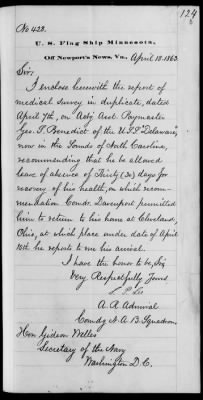 124
No 428.
U. S. Flag Ship Minnesota,
Off Newport's News, Va., April 18. 1863
Sir:
I enclose herewith the report of
medical survey in duplicate, dated
April 7th, on Actg Asst. Paymaster
Geo. T. Benedict of the U.S.S. "Delaware",
now in the Sounds of North Carolina,
recommending that he be allowed
leave of absence of Thirty (30) days for
recovery of his health, on which recom-
mendation Comdr. Davenport permitted
him to return to his home at Cleveland,
Ohio, at which place under date of April
10th he reports to me his arrival.
I have the honor to be, Sir
Very Respectfully Yours
S. P. Lee
A. R. Admiral
Comdg N. A. B. Squadron,
Hon Gideon Welles
Secretary of the Navy
Washington D.C.